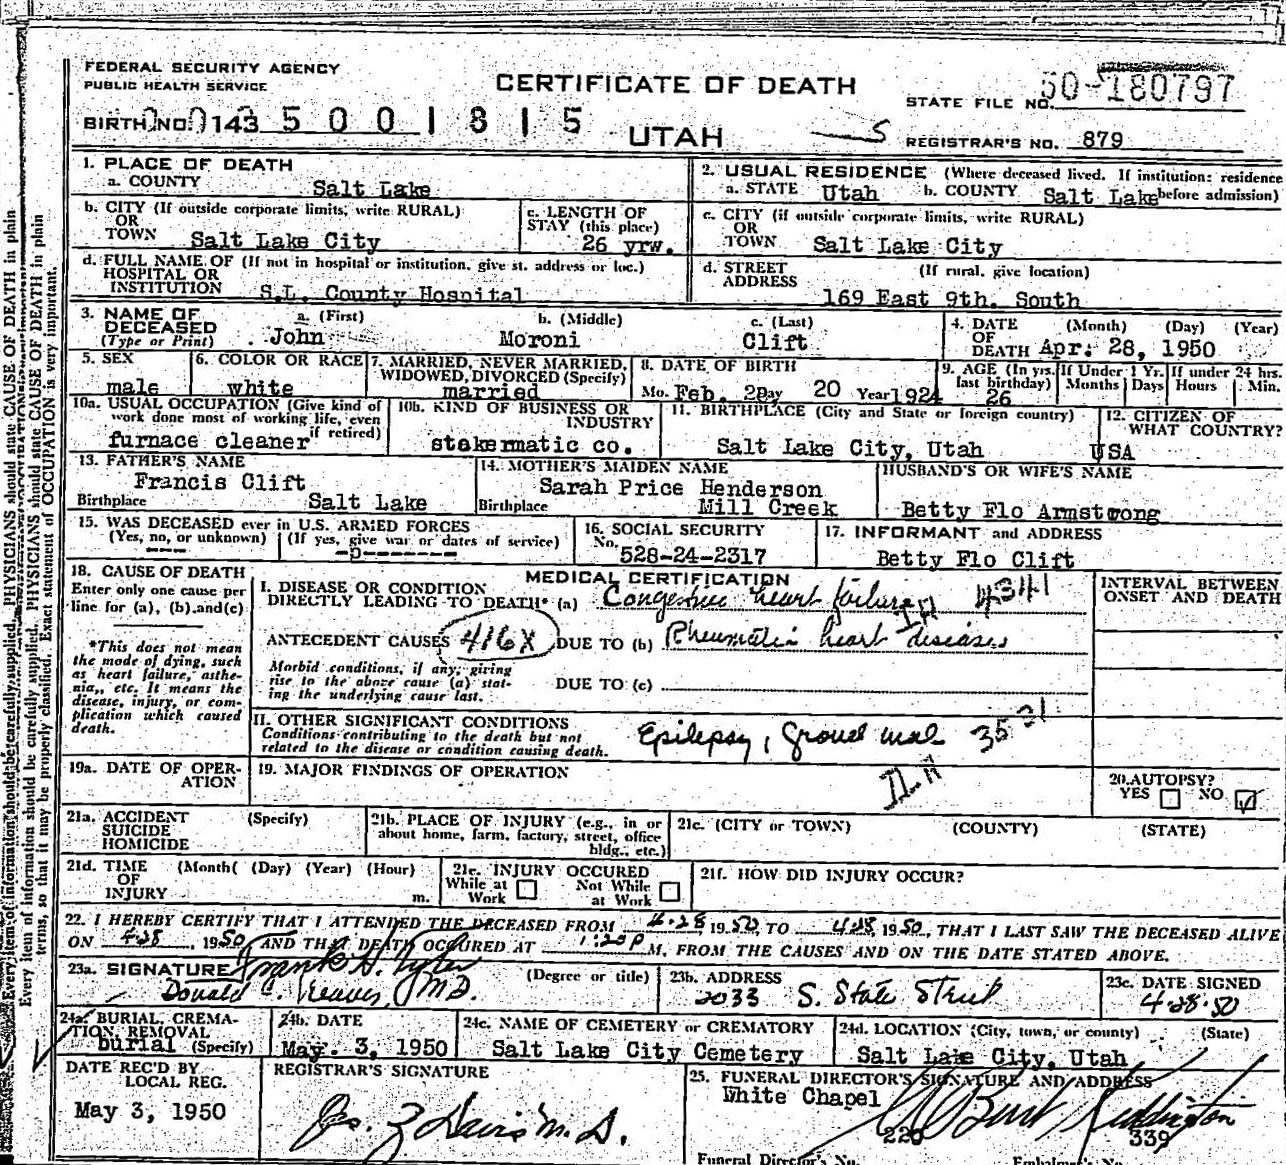 FEDERAL SECURITY AGENCY
PUBLIC HEALTH SERVICE
CERTIFICATE OF DEATH
STATE FILE NO. 50-180797
BIRTH NO. 0143 5 0 0 1 8 1 5
UTAH
S
REGISTRAR'S NO. 879
1. PLACE OF DEATH
a. COUNTY Salt Lake
2. USUAL RESIDENCE (Where deceased lived. If institution: residence before admission)
a. STATE Utah b. COUNTY Salt Lake
b. CITY (If outside corporate limits, write RURAL)
OR
TOWN Salt Lake City
c. LENGTH OF
STAY (this place)
26 yrw.
c. CITY (if outside corporate limits, write RURAL)
OR
TOWN Salt Lake City
d. FULL NAME OF (If not in hospital or institution, give st. address or loc.)
HOSPITAL OR
INSTITUTION S.L. County Hospital
d. STREET (If rural, give location)
ADDRESS
169 East 9th. South
3. NAME OF
DECEASED
(Type or Print)
a. (First) b. (Middle) c. (Last)
John Moroni Clift
4. DATE (Month) (Day) (Year)
OF
DEATH Apr. 28, 1950
5. SEX
male
6. COLOR OR RACE
white
7. MARRIED, NEVER MARRIED,
WIDOWED, DIVORCED (Specify)
married
8. DATE OF BIRTH
Mo. Feb. 2Day 20 Year 1924
9. AGE (In yrs. last birthday)
26
If Under 1 Yr.
Months Days
If under 24 hrs.
Hours Min.
10a. USUAL OCCUPATION (Give kind of
work done most of working life, even
if retired)
furnace cleaner
10b. KIND OF BUSINESS OR
INDUSTRY
stokermatic co.
11. BIRTHPLACE (City and State or foreign country)
Salt Lake City, Utah
12. CITIZEN OF
WHAT COUNTRY?
USA
13. FATHER'S NAME
Francis Clift
Birthplace Salt Lake
14. MOTHER'S MAIDEN NAME
Sarah Price Henderson
Birthplace Mill Creek
HUSBAND'S OR WIFE'S NAME
Betty Flo Armstrong
15. WAS DECEASED ever in U.S. ARMED FORCES
(Yes, no, or unknown) (If yes, give war or dates of service)
16. SOCIAL SECURITY
No. 528-24-2317
17. INFORMANT and ADDRESS
Betty Flo Clift
18. CAUSE OF DEATH
Enter only one cause per
line for (a), (b) and (c)
*This does not mean
the mode of dying, such
as heart failure, asthe-
nia,, etc. It means the
disease, injury, or com-
plication which caused
death.
MEDICAL CERTIFICATION
I. DISEASE OR CONDITION
DIRECTLY LEADING TO DEATH* (a) Congestive heart failure 4341
ANTECEDENT CAUSES 416X DUE TO (b) Rheumatic heart disease
Morbid conditions, if any, giving
rise to the above cause (a) stat-
ing the underlying cause last.
DUE TO (c)
II. OTHER SIGNIFICANT CONDITIONS
Conditions contributing to the death but not
related to the disease or condition causing death.
Epilepsy, Grand mal
INTERVAL BETWEEN
ONSET AND DEATH
19a. DATE OF OPER-
ATION
19. MAJOR FINDINGS OF OPERATION
20. AUTOPSY?
YES NO
21a. ACCIDENT (Specify)
SUICIDE
HOMICIDE
21b. PLACE OF INJURY (e.g., in or
about home, farm, factory, street, office
bldg., etc.)
21c. (CITY or TOWN) (COUNTY) (STATE)
21d. TIME (Month( (Day) (Year) (Hour)
OF
INJURY m.
21e. INJURY OCCURED
While at Work Not While at Work
21f. HOW DID INJURY OCCUR?
22. I HEREBY CERTIFY THAT I ATTENDED THE DECEASED FROM 4-28 1950 TO 4-28, 1950, THAT I LAST SAW THE DECEASED ALIVE
ON 4-28, 1950 AND THAT DEATH OCCURED AT 1:20 P M. FROM THE CAUSES AND ON THE DATE STATED ABOVE.
23a. SIGNATURE Frank H. Tyler (Degree or title)
Donald C. Reaves, M.D.
23b. ADDRESS
2033 S. State Street
23c. DATE SIGNED
4-28-50
24a. BURIAL, CREMA-
TION, REMOVAL
burial (Specify)
24b. DATE
May. 3, 1950
24c. NAME OF CEMETERY or CREMATORY
Salt Lake City Cemetery
24d. LOCATION (City, town, or county) (State)
Salt Lake City, Utah
DATE REC'D BY
LOCAL REG.
May 3, 1950
REGISTRAR'S SIGNATURE
Jos. Z Davis M.D.
25. FUNERAL DIRECTOR'S SIGNATURE AND ADDRESS
White Chapel
220 339
Funeral Director's No. Embalmer's No.
Every item of information should be carefully supplied. PHYSICIANS should state CAUSE OF DEATH in plain
Every item of information should be carefully supplied. PHYSICIANS should state CAUSE OF DEATH in plain
terms, so that it may be properly classified. Exact statement of OCCUPATION is very important.